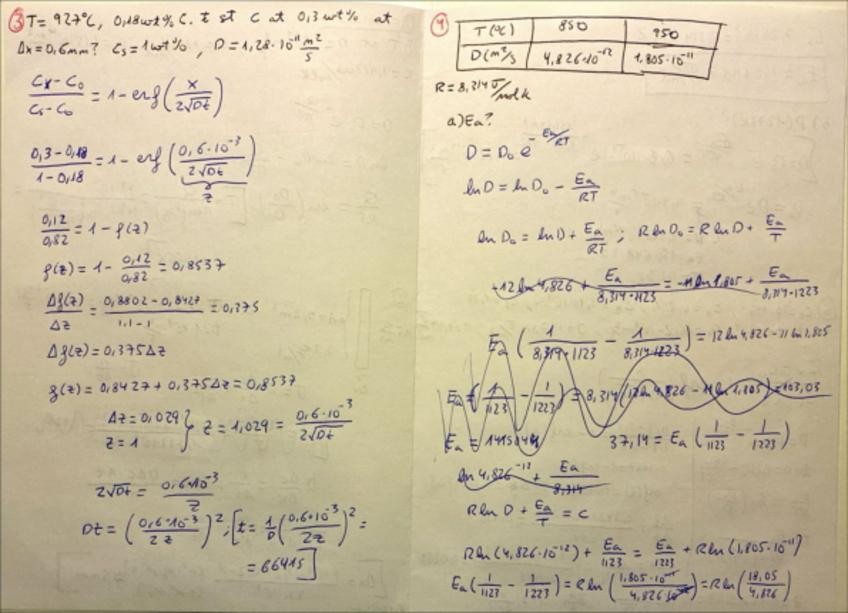 ③ T = 927°C, 0,18wt% C. t st C at 0,3wt% at
Δx = 0,6mm? Cs = 1wt%, D = 1,28·10⁻¹¹ m²/s
(Cx - C0)/(Cs - C0) = 1 - erf(x/(2√Dt))
(0,3 - 0,18)/(1 - 0,18) = 1 - erf(0,6·10⁻³/(2√Dt))
z
0,12/0,82 = 1 - f(z)
f(z) = 1 - 0,12/0,82 = 0,8537
Δf(z)/Δz = (0,8802 - 0,8427)/(1.1 - 1) = 0,375
Δf(z) = 0,375Δz
f(z) = 0,8427 + 0,375Δz = 0,8537
Δz = 0,029
z = 1 } z = 1,029 = 0,6·10⁻³/(2√Dt)
2√Dt = 0,6·10⁻³/z
Dt = (0,6·10⁻³/2z)²; [t = 1/D (0,6·10⁻³/2z)² =
= 6641s]
④ T(°C) 850 950
D(m²/s 4,826·10⁻¹² 1,805·10⁻¹¹
R = 8,314 J/mol K
a) Ea?
D = D0 e^(-Ea/RT)
ln D = ln D0 - Ea/RT
ln D0 = ln D + Ea/RT ; R ln D0 = R ln D + Ea/T
+12 ln 4,826 + Ea/(8,314·1123) = -11 ln 1,805 + Ea/(8,314·1223)
Ea (1/(8,314·1123) - 1/(8,314·1223)) = 12 ln 4,826 - 11 ln 1,805
Ea = (1/1123 - 1/1223) = 8,314 (12 ln 4,826 - 11 ln 1,805) = 103,03
Ea = 37,14 = Ea (1/1123 - 1/1223)
ln 4,826⁻¹² + Ea/8,314
R ln D + Ea/T = C
R ln (4,826·10⁻¹²) + Ea/1123 = Ea/1223 + R ln (1,805·10⁻¹¹)
Ea (1/1123 - 1/1223) = R ln (1,805·10⁻¹¹/4,826·10⁻¹²) = R ln (18,05/4,826)